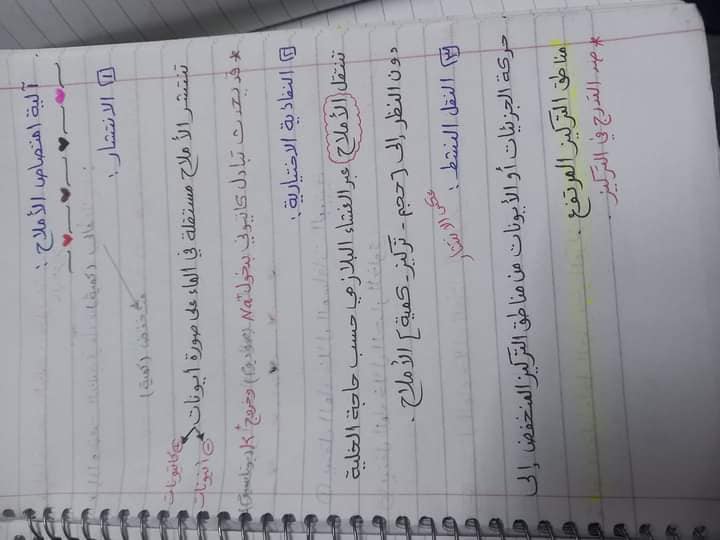 آلية امتصاص الأملاح :
1 الانتشار :
تنتشر الأملاح مستقلة في الماء على صورة أيونات
كاتيونات +
انيونات -
* قد يحدث تبادل كاتيوني بدخول Na+ (صوديوم) وخروج K+ (بوتاسيوم)
2 النفاذية الاختيارية :
تنتقل الأملاح عبر الغشاء البلازمي حسب حاجة الخلية
دون النظر إلى [حجم - تركيز - كمية] الأملاح .
3 النقل النشط :
عكس الانتشار
حركة الجزيئات أو الأيونات من مناطق التركيز المنخفض إلى
مناطق التركيز المرتفع .
* ضد التدرج في التركيز .